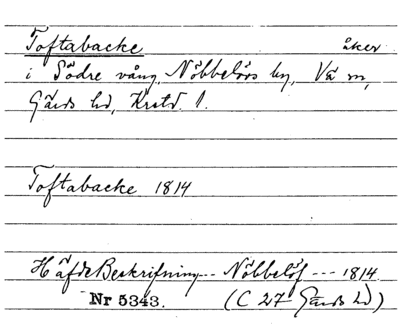 Toftabacke åker
i Södre vång, Nöbbelövs by, Vä sn,
Gärds hd, Kristd. l.
Toftabacke 1814
HäfdeBeskrifning... Nöbbelöf --- 1814.
Nr 5343. (C 27 Gärds hd)